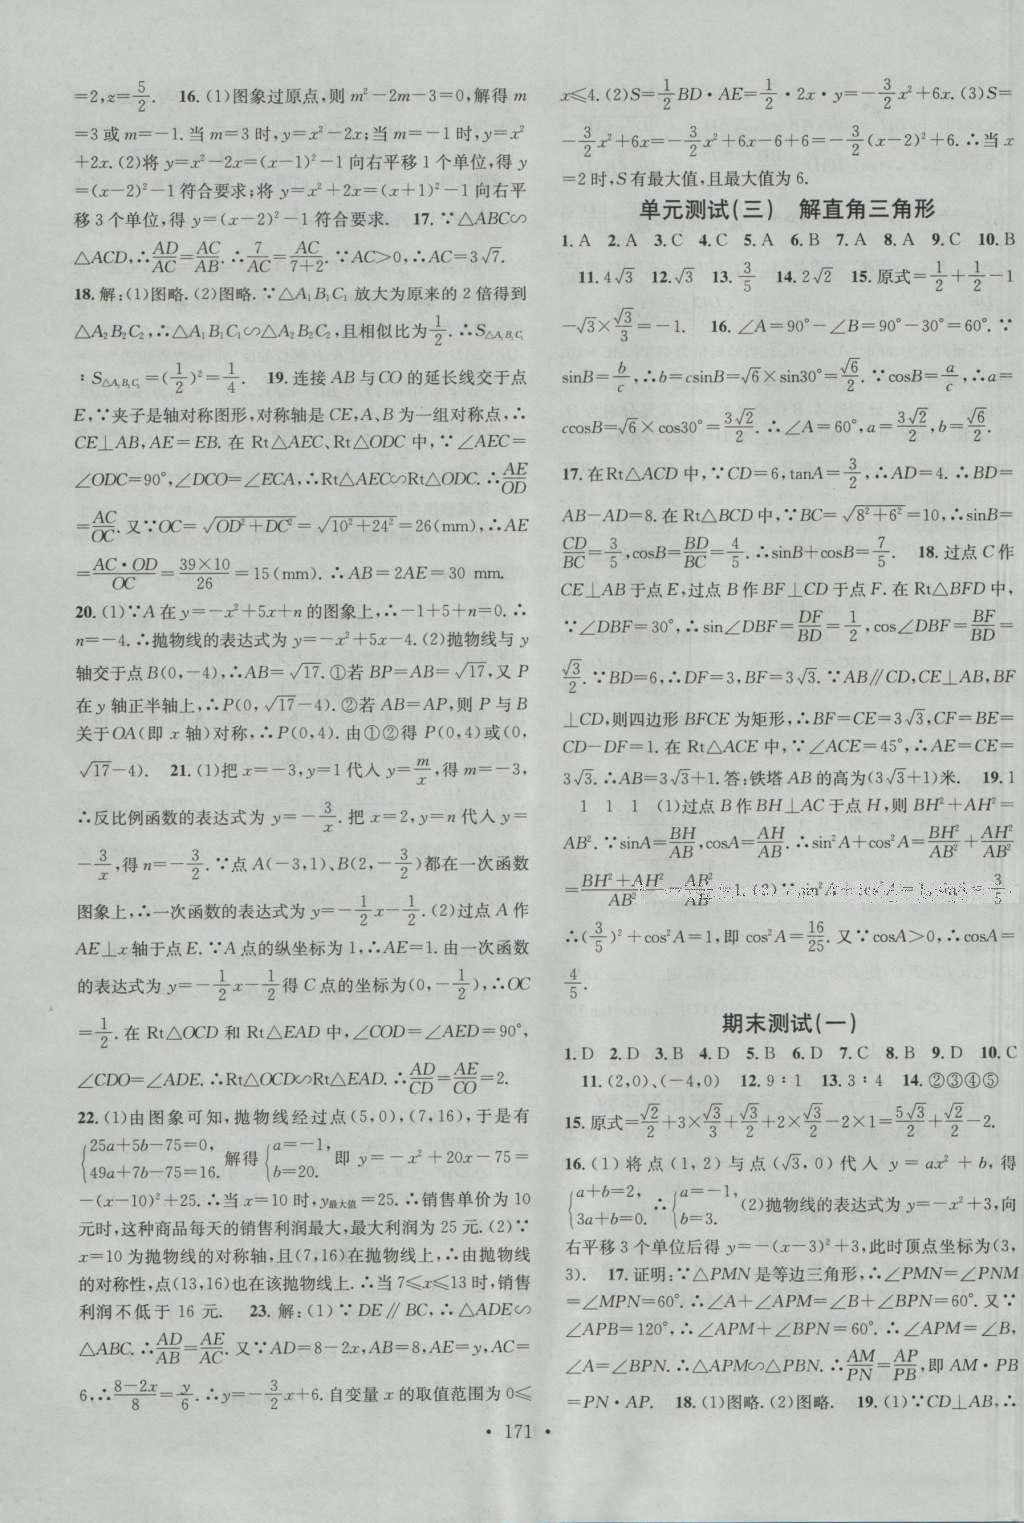 =2,z=5/2. 16.(1)图象过原点,则 m²-2m-3=0,解得 m
=3或 m=-1.当 m=3 时,y=x²-2x;当 m=-1 时,y=x²
+2x.(2)将 y=x²-2x=(x-1)²-1 向右平移 1 个单位,得 y
=(x-2)²-1 符合要求;将 y=x²+2x=(x+1)²-1 向右平
移 3 个单位,得 y=(x-2)²-1 符合要求. 17.∵△ABC∽
△ACD,∴AD/AC=AC/AB.∴7/AC=AC/(7+2).∵AC>0,∴AC=3√7.
18.解:(1)图略.(2)图略.∵△A₁B₁C₁ 放大为原来的 2 倍得到
△A₂B₂C₂,∴△A₁B₁C₁∽△A₂B₂C₂,且相似比为1/2.∴S△A₁B₁C₁
∶S△A₂B₂C₂=(1/2)²=1/4. 19.连接 AB 与 CO 的延长线交于点
E,∵夹子是轴对称图形,对称轴是 CE,A、B 为一组对称点,∴
CE⊥AB,AE=EB.在 Rt△AEC、Rt△ODC 中,∵∠AEC=
∠ODC=90°,∠DCO=∠ECA,∴Rt△AEC∽Rt△ODC.∴AE/OD
=AC/OC.又∵OC=√(OD²+DC²)=√(10²+24²)=26(mm),∴AE
=AC·OD/OC=39×10/26=15(mm).∴AB=2AE=30 mm.
20.(1)∵A 在 y=-x²+5x+n 的图象上,∴-1+5+n=0.∴
n=-4.∴抛物线的表达式为 y=-x²+5x-4.(2)抛物线与 y
轴交于点 B(0,-4),∴AB=√17.①若 BP=AB=√17,又 P
在 y 轴正半轴上,∴P(0,√17-4).②若 AB=AP,则 P 与 B
关于OA(即 x 轴)对称,∴P(0,4).由①②得 P(0,4)或(0,
√17-4). 21.(1)把 x=-3,y=1代入 y=m/x,得 m=-3,
∴反比例函数的表达式为 y=-3/x.把 x=2,y=n 代入 y=
-3/x,得 n=-3/2.∵点 A(-3,1)、B(2,-3/2)都在一次函数
图象上,∴一次函数的表达式为 y=-1/2x-1/2.(2)过点 A 作
AE⊥x 轴于点 E.∵A 点的纵坐标为 1,∴AE=1.由一次函数
的表达式为 y=-1/2x-1/2得 C 点的坐标为(0,-1/2),∴OC
=1/2.在 Rt△OCD 和 Rt△EAD 中,∠COD=∠AED=90°,
∠CDO=∠ADE.∴Rt△OCD∽Rt△EAD.∴AD/CD=AE/CO=2.
22.(1)由图象可知,抛物线经过点(5,0),(7,16),于是有
{25a+5b-75=0, 49a+7b-75=16. 解得{a=-1, b=20. 即 y=-x²+20x-75=
-(x-10)²+25.∴当 x=10 时,y最大值=25.∴销售单价为 10
元时,这种商品每天的销售利润最大,最大利润为 25 元.(2)∵
x=10 为抛物线的对称轴,且(7,16)在抛物线上,∴由抛物线
的对称性,点(13,16)也在该抛物线上.∴当 7≤x≤13 时,销售
利润不低于 16 元. 23.解:(1)∵DE∥BC,∴△ADE∽
△ABC.∴AD/AB=AE/AC.又∵AD=8-2x,AB=8,AE=y,AC=
6,∴(8-2x)/8=y/6.∴y=-3/2x+6.自变量 x 的取值范围为 0≤
x≤4.(2)S=1/2BD·AE=1/2·2x·y=-3/2x²+6x.(3)S=
-3/2x²+6x=-3/2x²+6x-6+6=-3/2(x-2)²+6.∴当 x
=2 时,S有最大值,且最大值为 6.
单元测试(三) 解直角三角形
1.A 2.A 3.C 4.C 5.A 6.B 7.A 8.A 9.C 10.B
11.4√3 12.√3 13.3/5 14.2√2 15.原式=1/2+1/2-1
-√3×√3/3=-1. 16.∠A=90°-∠B=90°-30°=60°.∵
sinB=b/c,∴b=csinB=√6×sin30°=√6/2.∵cosB=a/c,∴a=
ccosB=√6×cos30°=3√2/2.∴∠A=60°,a=3√2/2,b=√6/2.
17.在 Rt△ACD 中,∵CD=6,tanA=3/2,∴AD=4.∴BD=
AB-AD=8.在 Rt△BCD 中,∵BC=√(8²+6²)=10,∴sinB=
CD/BC=3/5,cosB=BD/BC=4/5.∴sinB+cosB=7/5. 18.过点 C 作
CE⊥AB 于点 E,过点 B 作 BF⊥CD 于点 F.在 Rt△BFD 中,
∵∠DBF=30°,∴sin∠DBF=DF/BD=1/2,cos∠DBF=BF/BD=
√3/2.∵BD=6,∴DF=3,BF=3√3.∵AB∥CD,CE⊥AB,BF
⊥CD,则四边形 BFCE 为矩形,∴BF=CE=3√3,CF=BE=
CD-DF=1.在 Rt△ACE 中,∵∠ACE=45°,∴AE=CE=
3√3.∴AB=3√3+1.答:铁塔 AB 的高为(3√3+1)米. 19.1
1 1 1 (1)过点 B 作 BH⊥AC 于点 H,则 BH²+AH²=
AB².∵sinA=BH/AB,cosA=AH/AB.∴sin²A+cos²A=BH²/AB²+AH²/AB²
=(BH²+AH²)/AB²=AB²/AB²=1.(2)∵sin²A+cos²A=1, 3/5
∴(3/5)²+cos²A=1,即 cos²A=16/25.又∵cosA>0,∴cosA=
4/5.
期末测试(一)
1.D 2.D 3.B 4.D 5.B 6.D 7.C 8.B 9.D 10.C
11.(2,0)、(-4,0) 12.9∶1 13.3∶4 14.②③④⑤
15.原式=√2/2+3×√3/3+√3/2+2×√3/2-2×1=5√3/2+√2/2-2.
16.(1)将点(1,2)与点(√3,0)代入 y=ax²+b,得
{a+b=2, 3a+b=0. ∴{a=-1, b=3. (2)抛物线的表达式为 y=-x²+3,向
右平移 3 个单位后得 y=-(x-3)²+3,此时顶点坐标为(3,
3). 17.证明:∵△PMN是等边三角形,∴∠PMN=∠PNM
=∠MPN=60°.∴∠A+∠APM=∠B+∠BPN=60°.又∵
∠APB=120°,∴∠APM+∠BPN=60°.∴∠APM=∠B,
∠A=∠BPN.∴△APM∽△PBN.∴AM/PN=AP/PB,即 AM·PB
=PN·AP. 18.(1)图略.(2)图略. 19.(1)∵CD⊥AB,∴
• 171 •